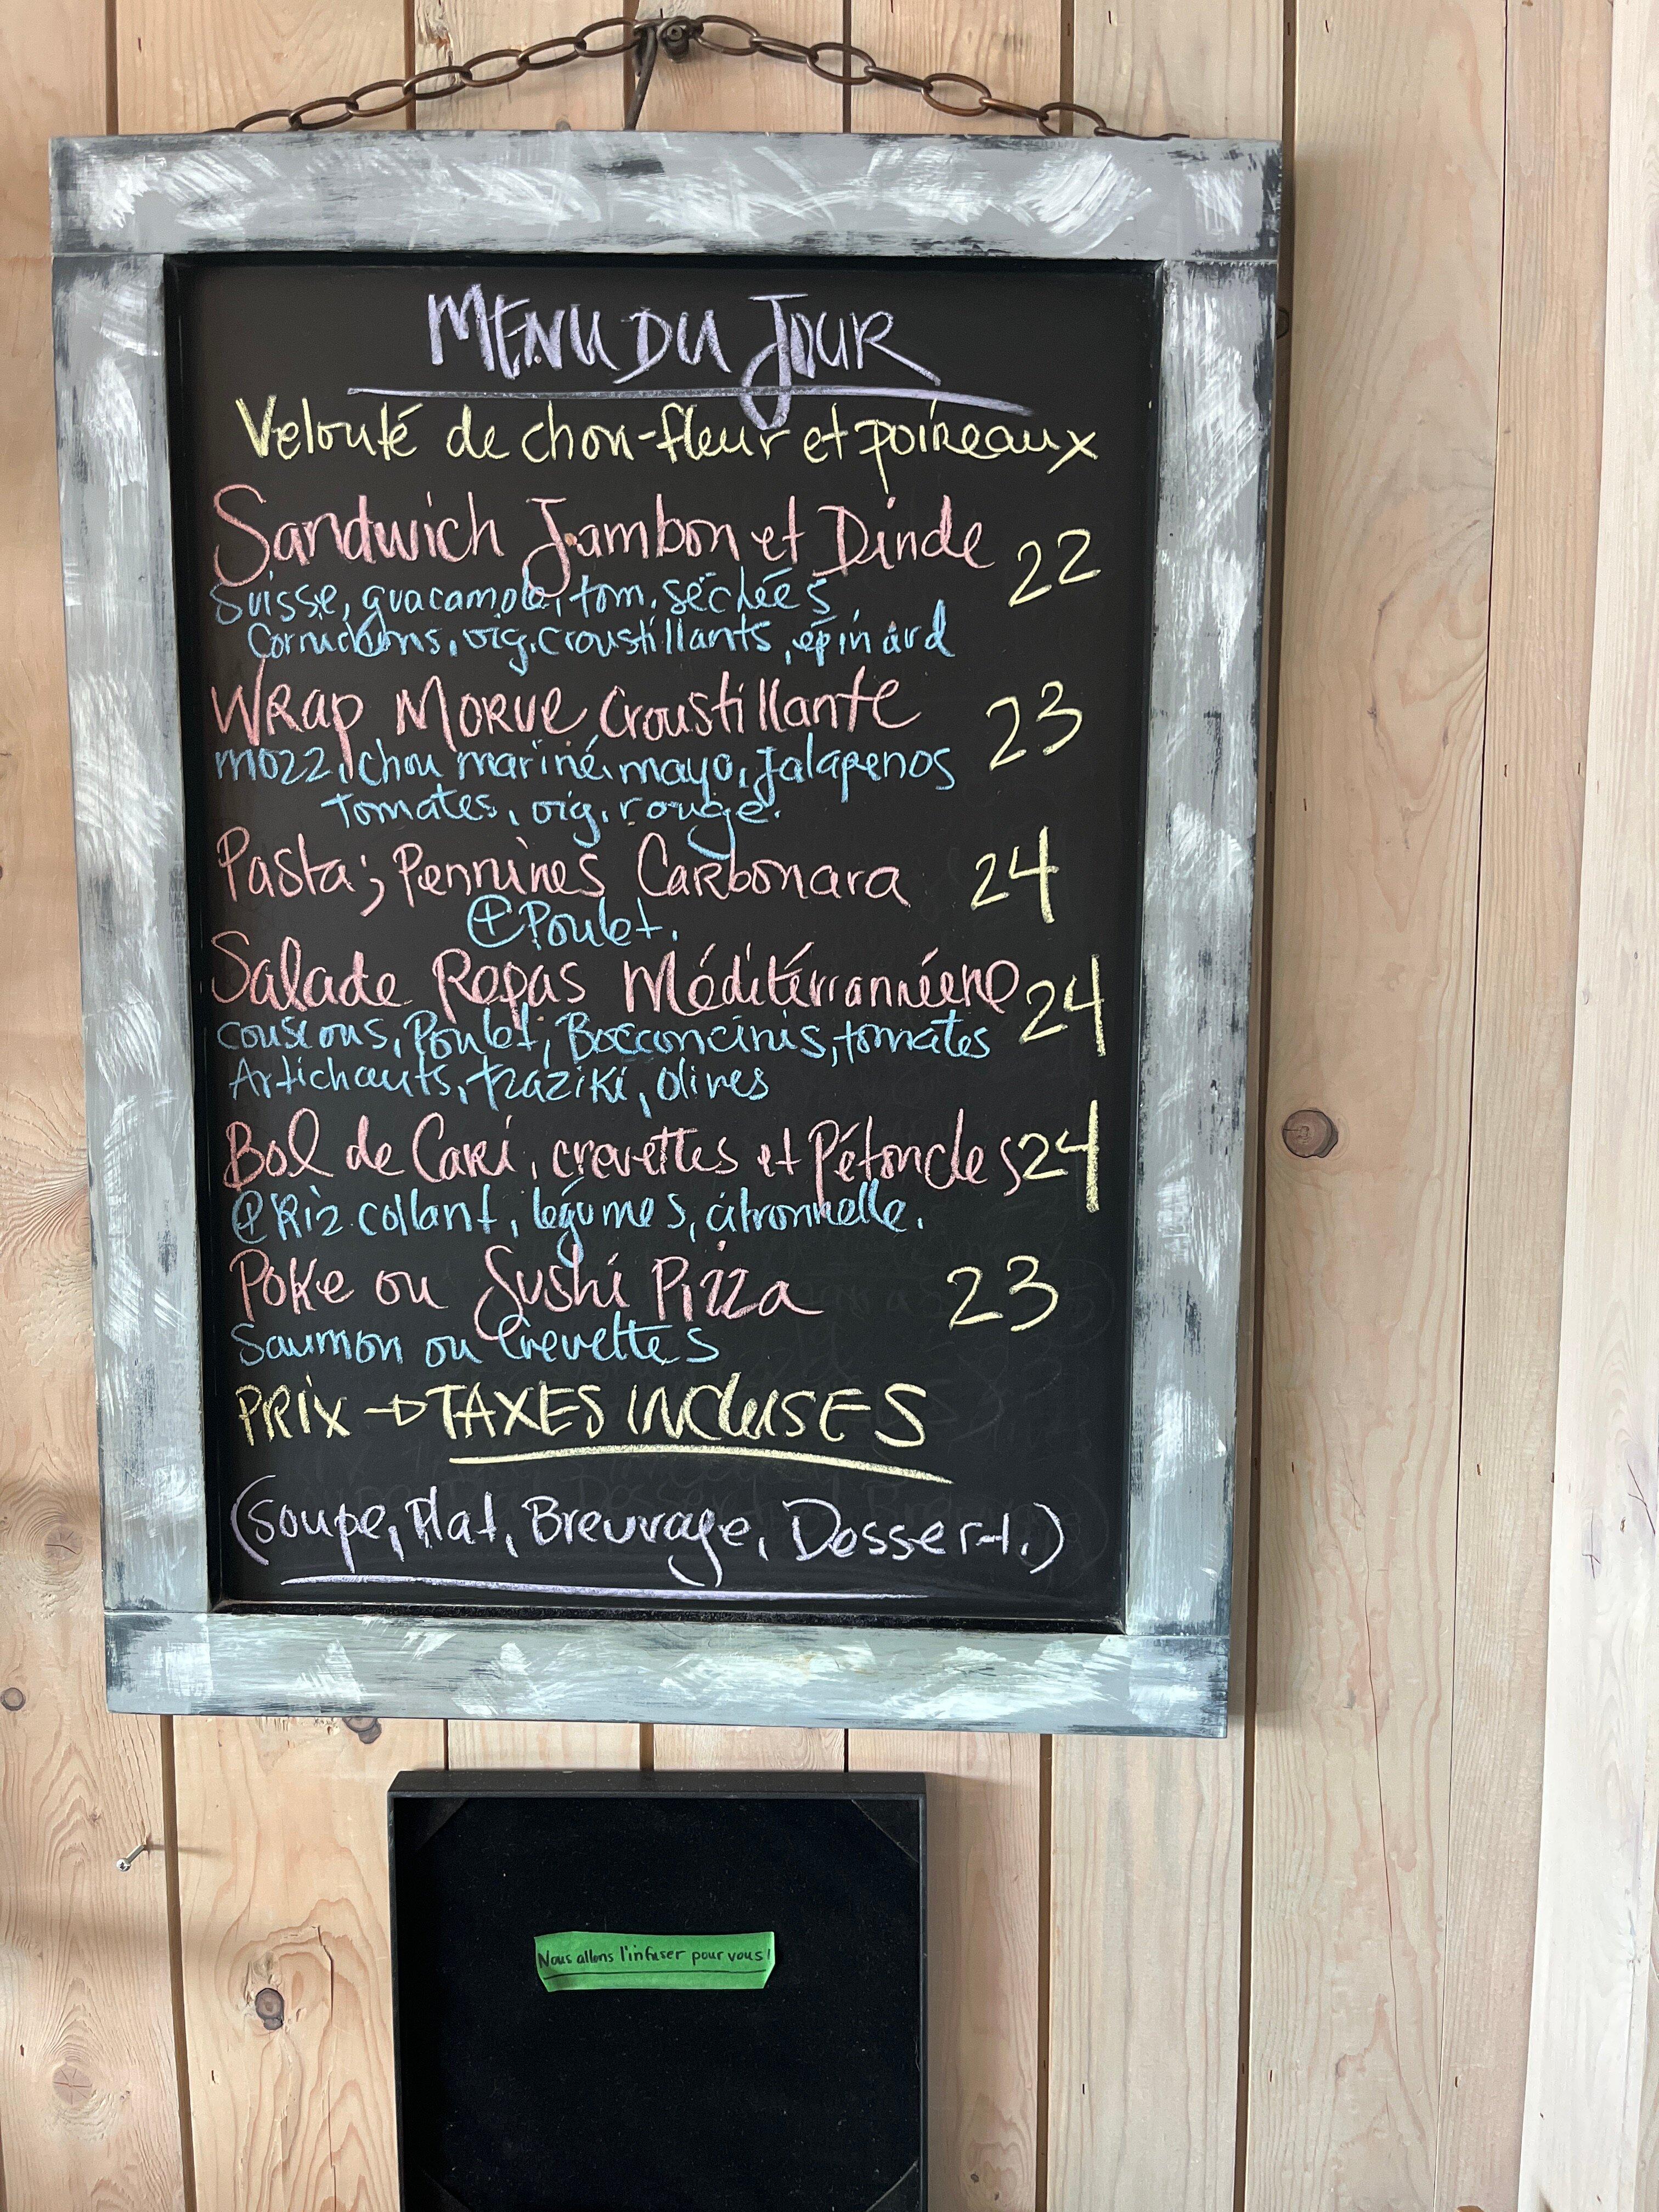 MENU DU JOUR
Velouté de chou-fleur et poireaux
Sandwich Jambon et Dinde 22
Suisse, guacamole, tom. séchées
Cornichons, oig. croustillants, épinard
WRap MORUE Croustillante 23
mozz, chou mariné, mayo, Jalapenos
Tomates, oig. rouge.
Pasta; Pennines Carbonara 24
@ Poulet.
Salade Repas Méditérrannéene 24
couscous, Poulet, Bocconcinis, tomates
Artichauts, tzaziki, olives
Bol de Cari, crevettes et Pétoncles 24
@ Riz collant, légumes, citronnelle.
Poke ou Sushi Pizza 23
Saumon ou Crevettes
PRIX → TAXES INCLUSES
(Soupe, Plat, Breuvage, Dessert.)
Nous allons l'infuser pour vous!